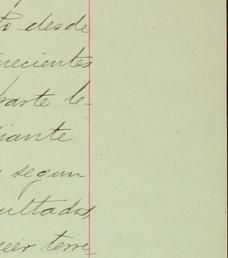 to desde
necientes
parte le-
diante
segun
ultados,
seer terre-